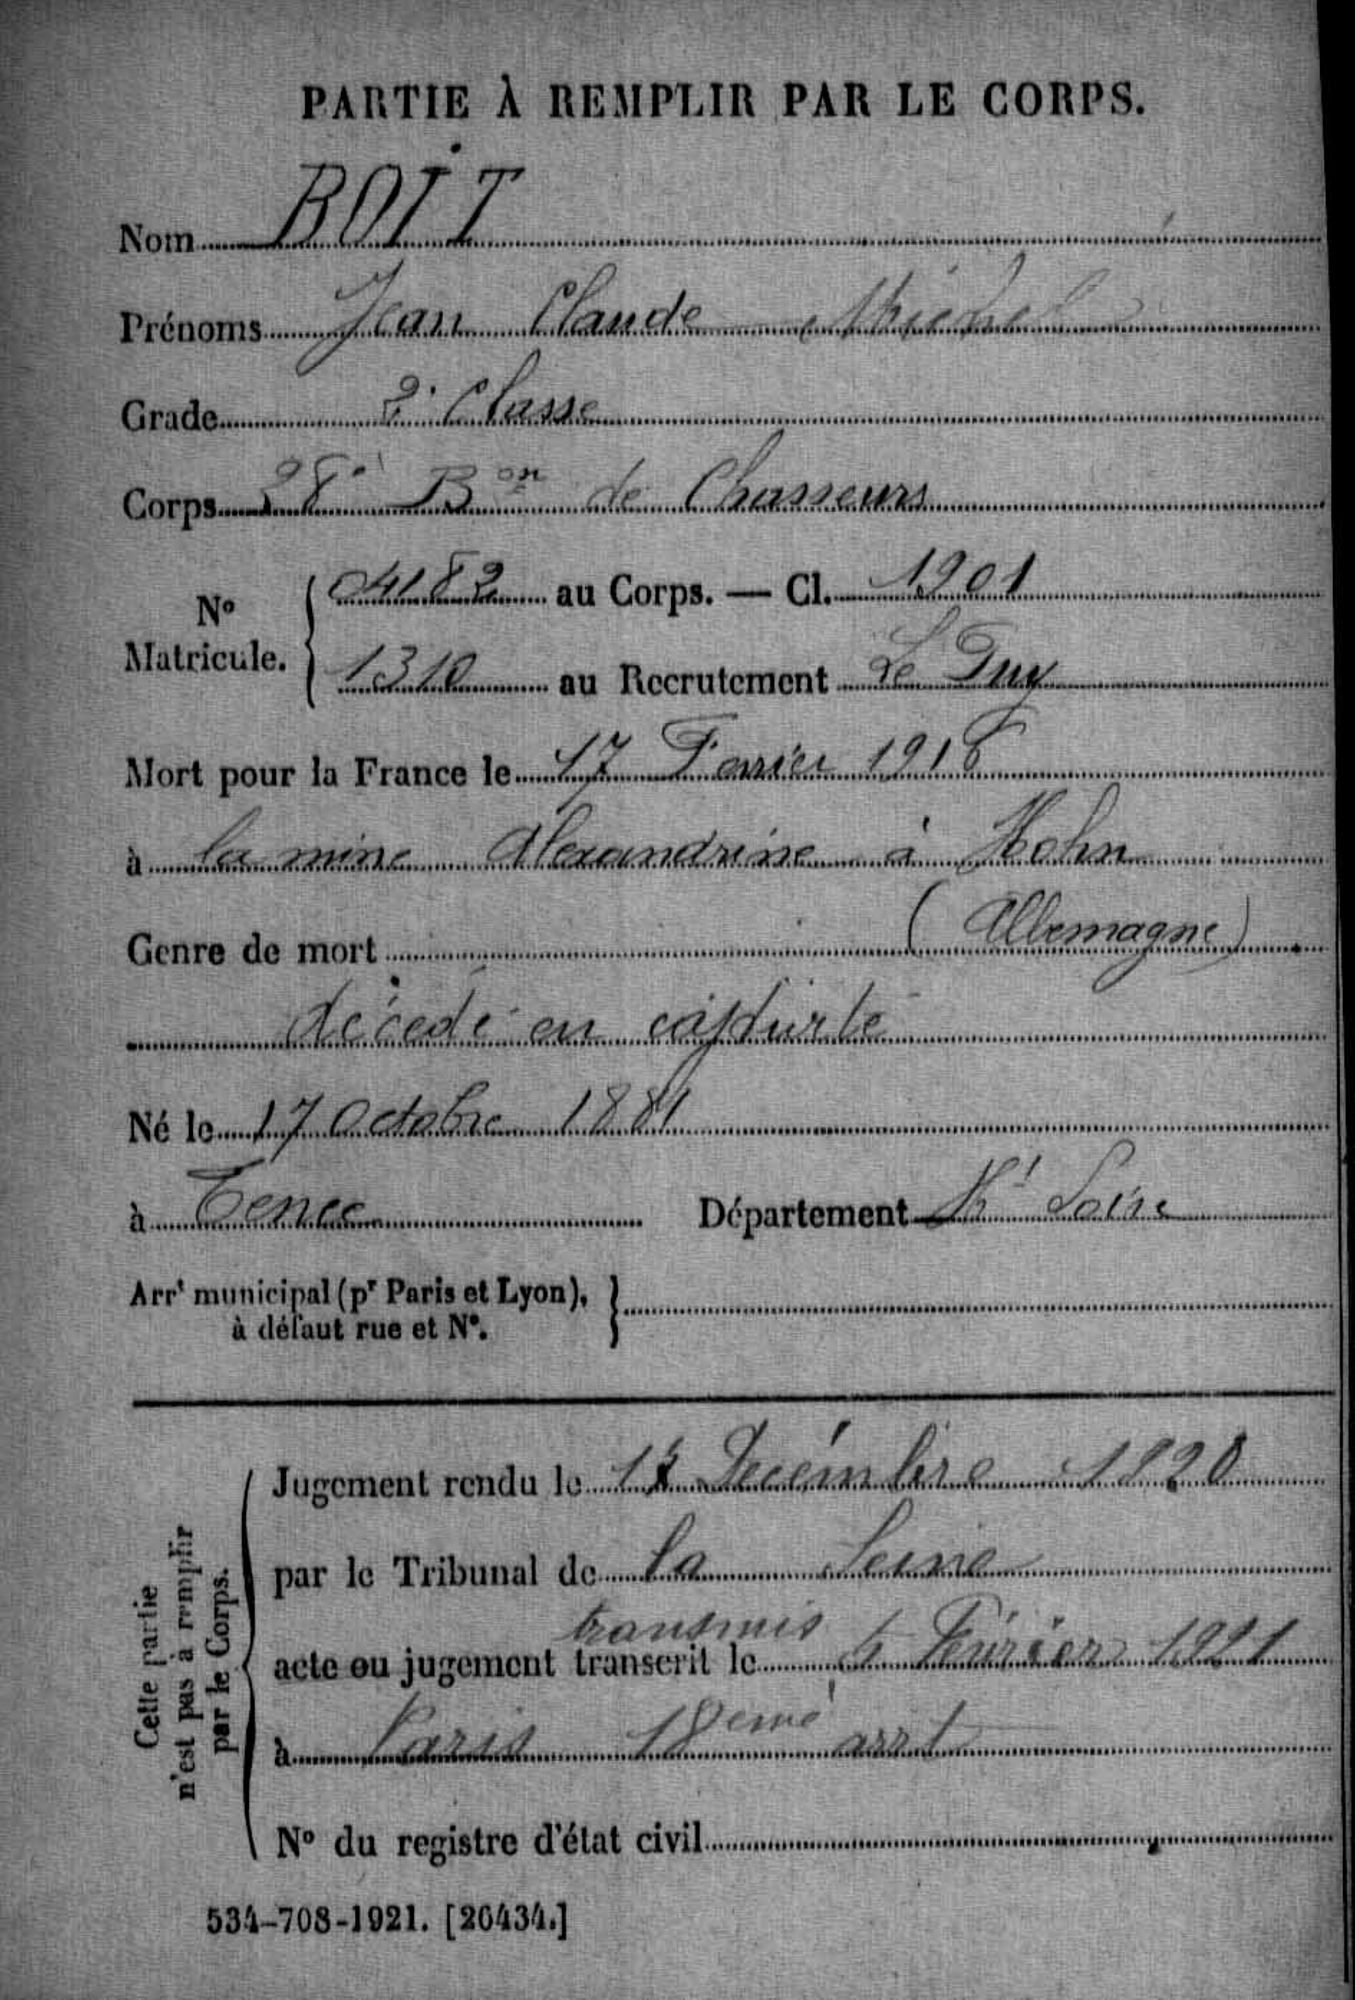 PARTIE À REMPLIR PAR LE CORPS.
Nom BOIT
Prénoms Jean Claude Michel
Grade 2e Classe
Corps 28e Bon de Chasseurs
No Matricule. 04182 au Corps. — Cl. 1901
1310 au Recrutement Le Puy
Mort pour la France le 17 Fevrier 1918
à la mine Alexandrine à Hohn
(Allemagne)
Genre de mort
décédé en captivité
Né le 17 Octobre 1881
à Tence Département Hte Loire
Arrt municipal (pr Paris et Lyon),
à défaut rue et No.
Cette partie
n'est pas à remplir
par le Corps.
Jugement rendu le Decembre 1920
par le Tribunal de la Seine
transmis
acte ou jugement transcrit le 5 Février 1921
à Paris 18eme arrt
No du registre d'état civil
534-708-1921. [26434.]